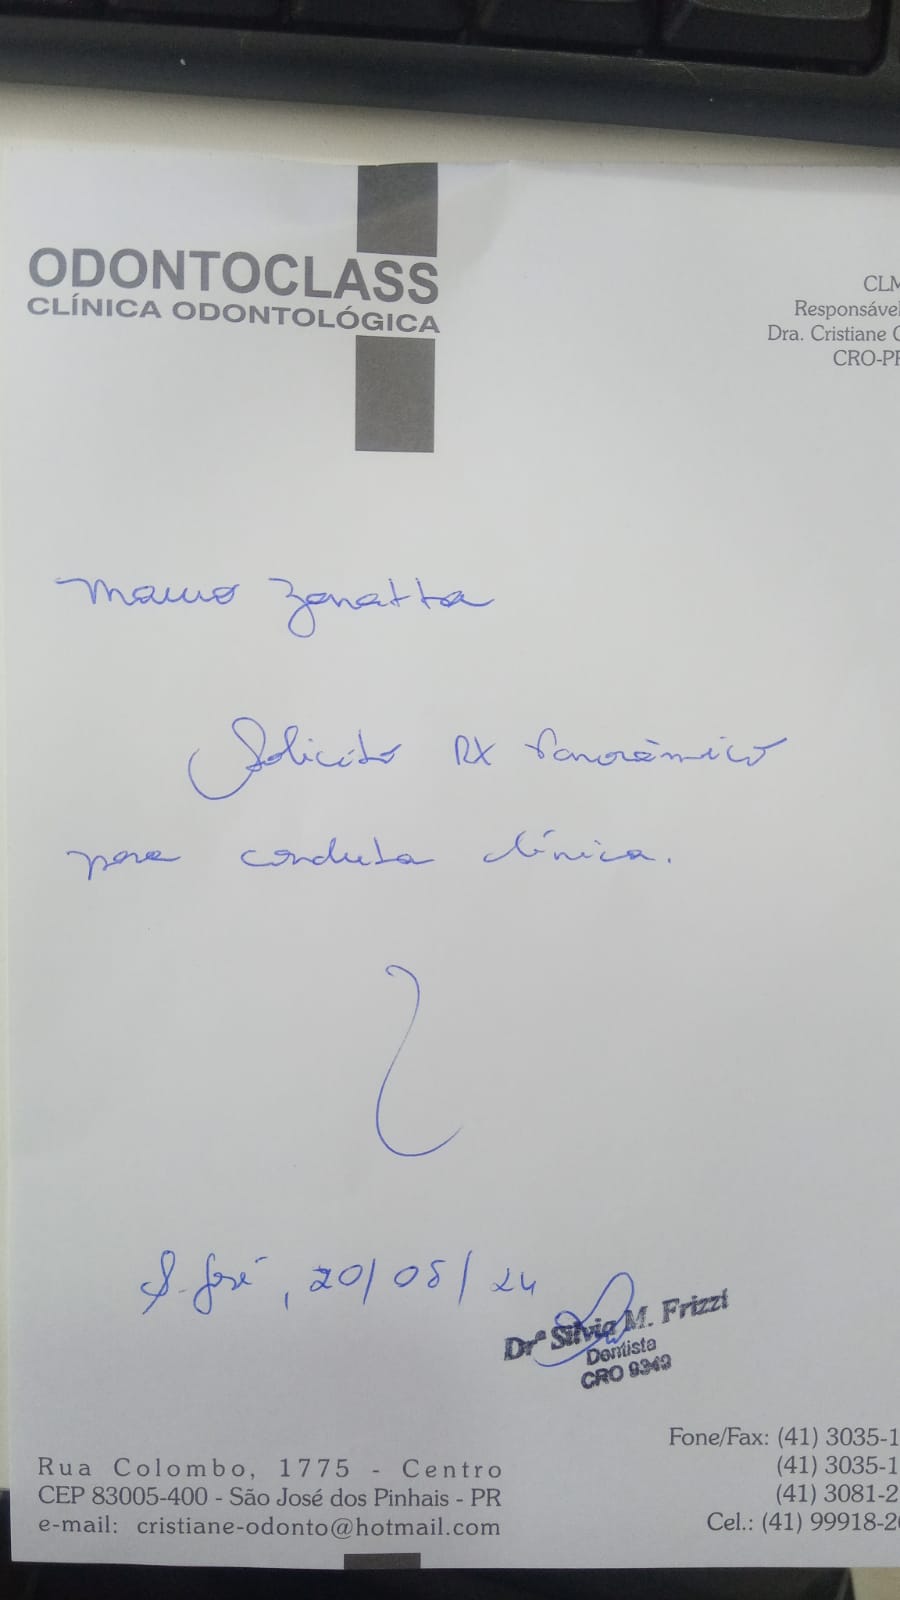 ODONTOCLASS
CLÍNICA ODONTOLÓGICA
CLM
Responsável
Dra. Cristiane
CRO-PR
Mauro Zanatta
Solicito RX Panorâmico
para conduta clínica.
S. José, 20/05/24
Drª Silvia M. Frizzi
Dentista
CRO 9343
Fone/Fax: (41) 3035-1
(41) 3035-1
(41) 3081-2
Cel.: (41) 99918-2
Rua Colombo, 1775 - Centro
CEP 83005-400 - São José dos Pinhais - PR
e-mail: cristiane-odonto@hotmail.com